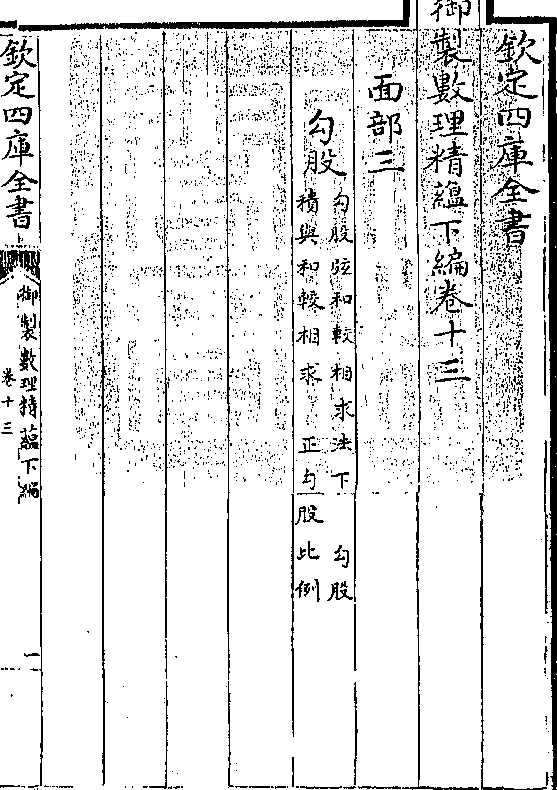 欽定四庫全書
御製數理精蘊下編卷十三
面部三
勾股
勾股弦和較相求法下 勾股
積與和較相求 正勾股比例
欽定四庫全書
御製數理精蘊下編
卷十三
一